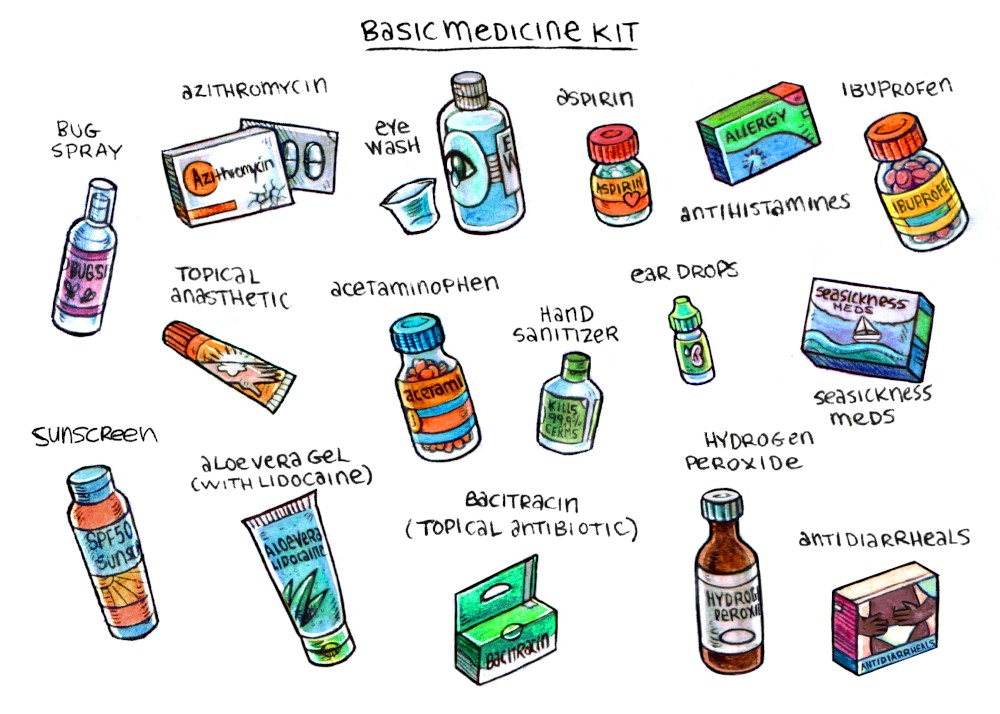 BASIC MEDICINE KIT
AZITHROMYCIN
Azithromycin
BUG
SPRAY
BUGS!
EYE
WASH
E
W
ASPIRIN
ASPIRIN
ALLERGY
ANTIHISTAMINES
IBUPROFEN
IBUPROFE
TOPICAL
ANASTHETIC
ACETAMINOPHEN
ACETAMI
HAND
SANITIZER
KILLS
99.9%
GERMS
EAR DROPS
SEASICKNESS
MEDS
SEASICKNESS
MEDS
SUNSCREEN
SPF50
SUNSC
ALOE VERA GEL
(WITH LIDOCAINE)
ALOEVERA
LIDOCAINE
BACITRACIN
(TOPICAL ANTIBIOTIC)
BACITRACIN
HYDROGEN
PEROXIDE
HYDROG
PEROXID
ANTIDIARRHEALS
ANTIDIARRHEALS